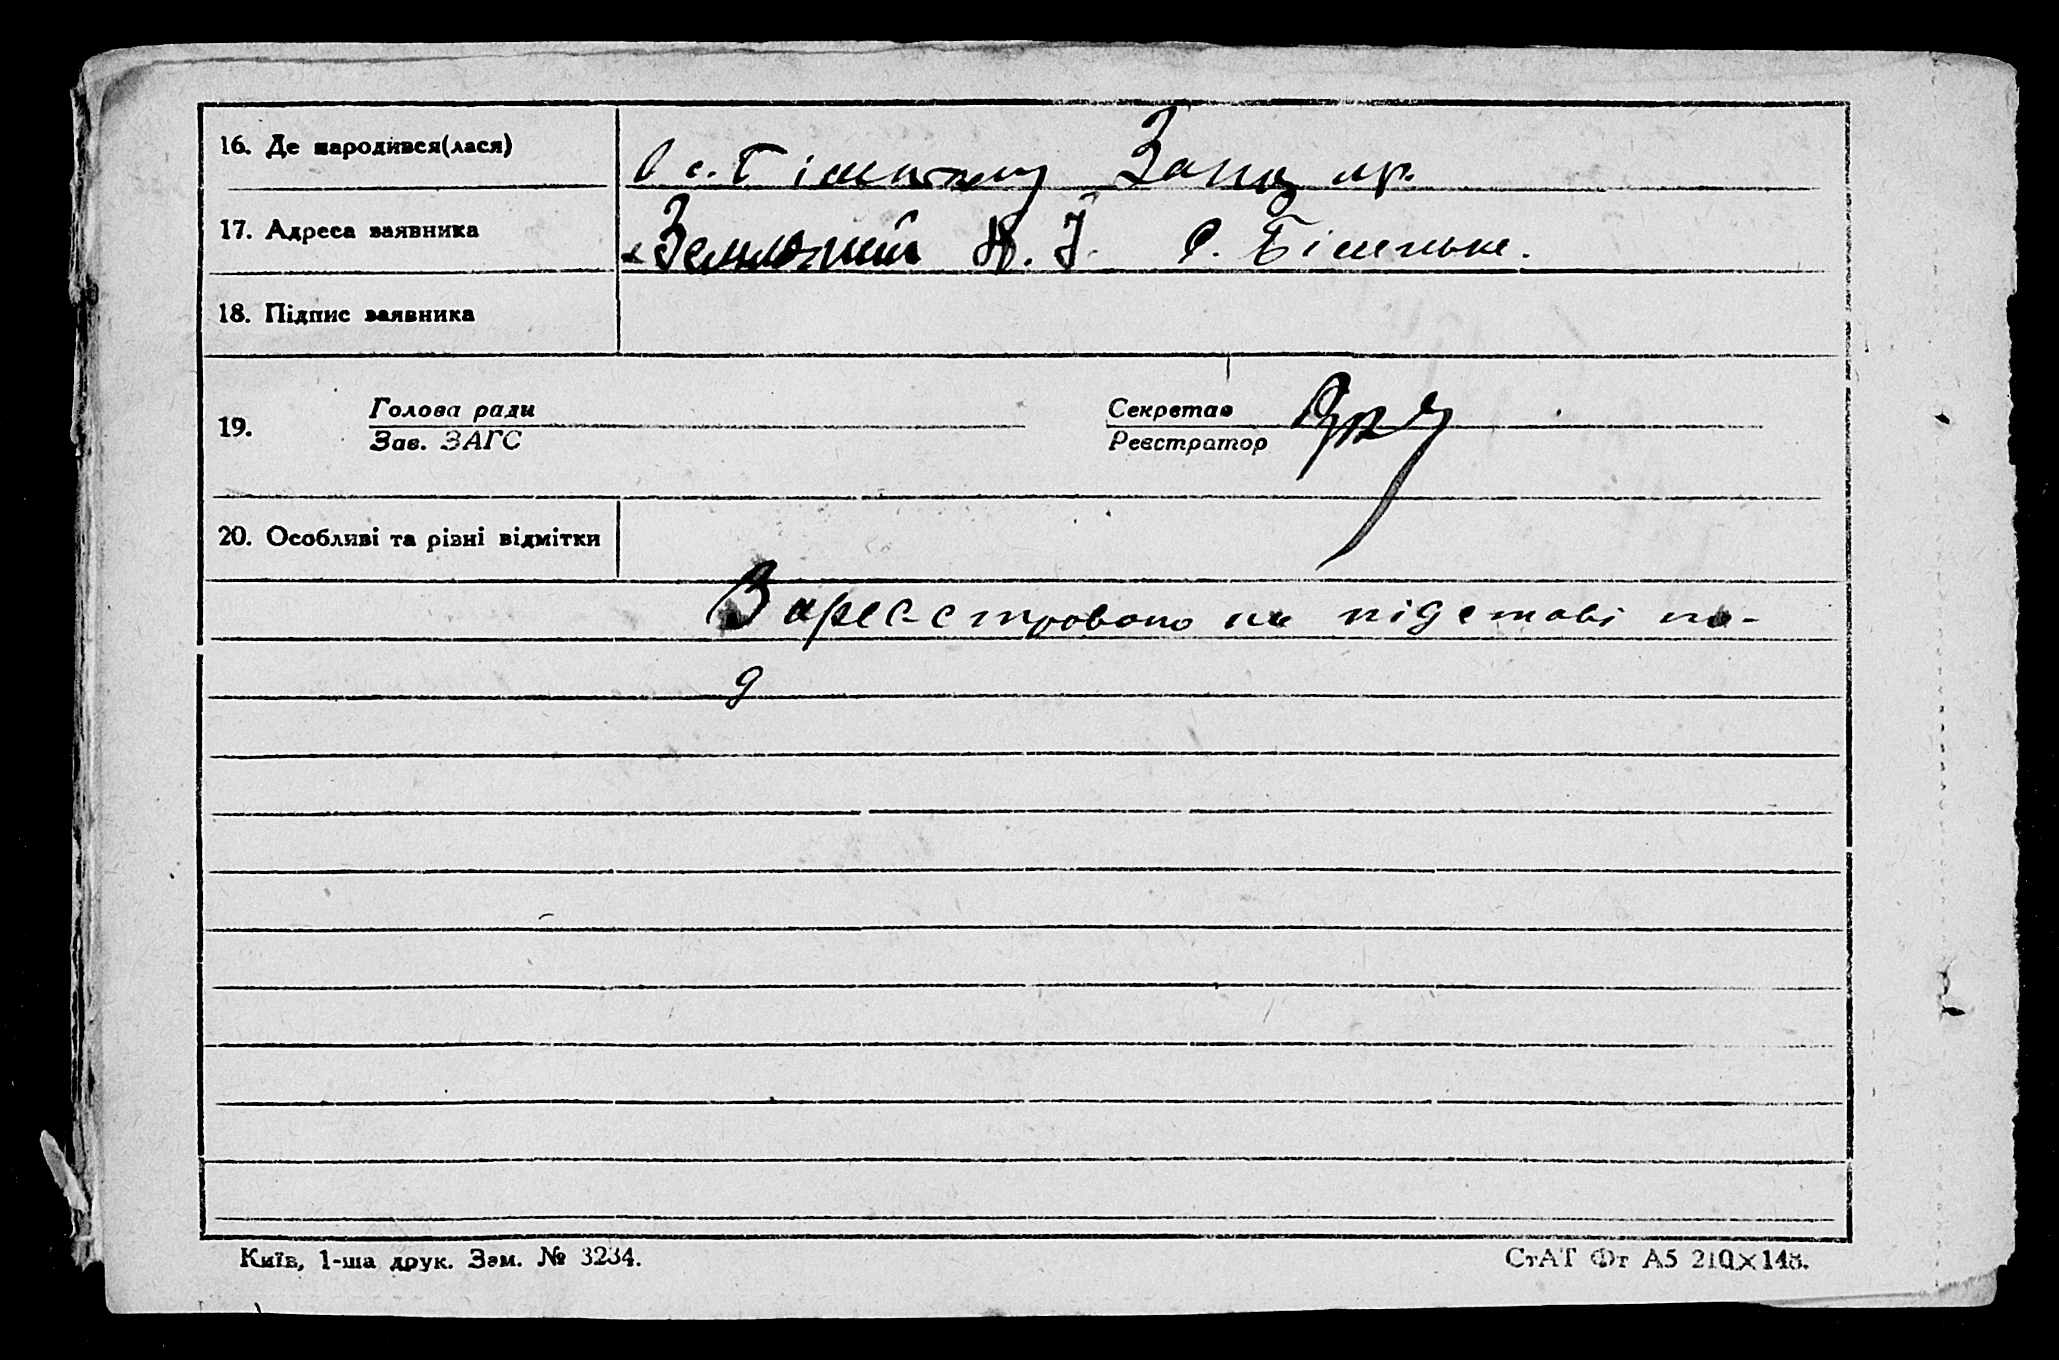 16. Де народився(лася)
с. Біленьку Запоз
17. Адреса заявника
Н. І. с. Біленьке.
18. Підпис заявника
19. Голова ради
Зав. ЗАГС
Секретар
Реєстратор
20. Особливі та різні відмітки
Зареєстровано на підставі по-
д
Київ, 1-ша друк. Зам. № 3234.
СтАТ Фт А5 210×148.